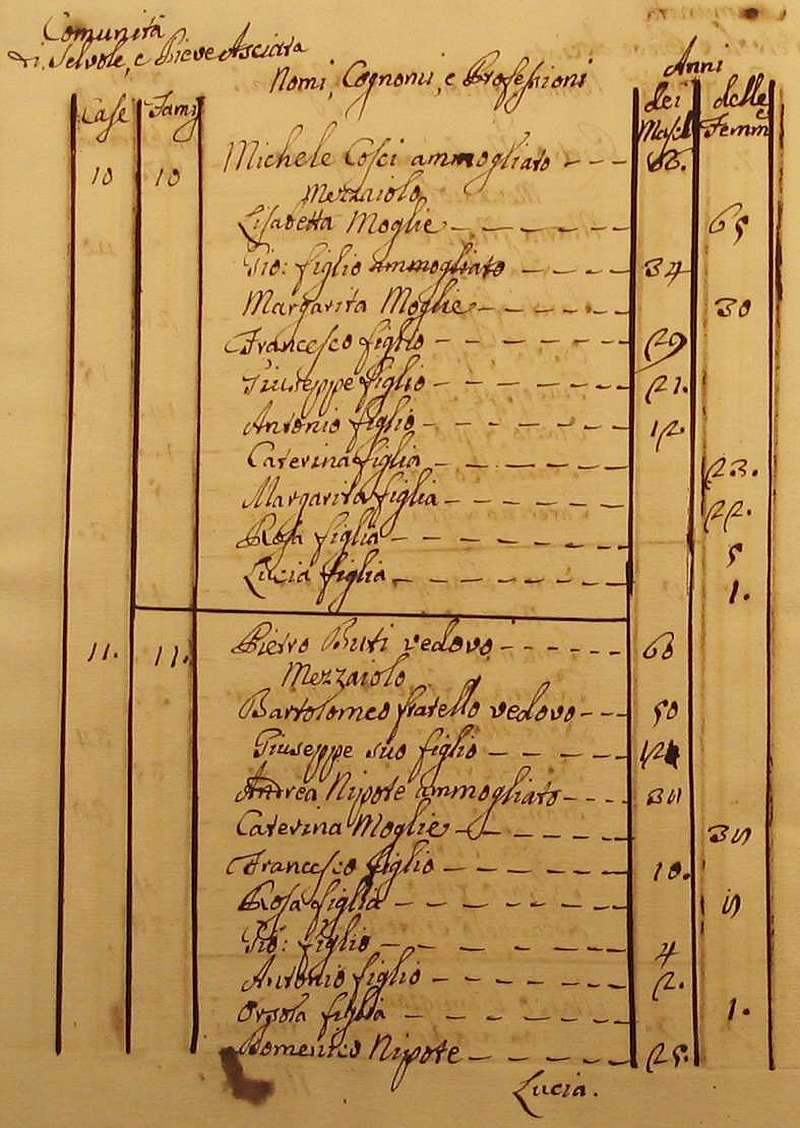 Comunità
di Selvole, e Pieve Asciata
Nomi, Cognomi, e Professioni
Anni
Case Famig dei Masch delle Femm
10 10 Michele Cosci ammogliato 66.
Mezzaiolo
Lisabetta Moglie 65
Gio: figlio ammogliato 34
Margarita Moglie 30
Francesco figlio 29
Giuseppe figlio 21.
Antonio figlio 12.
Caterina figlia 23.
Margarita figlia 22.
Rosa figlia 5
Lucia figlia 1.
11. 11. Pietro Buti vedovo 60
Mezzaiolo
Bartolomeo fratello vedovo 50
Giuseppe suo figlio
Andrea Nipote ammogliato 35
Caterina Moglie 35
Francesco figlio 10.
Rosa figlia 5
Gio: figlio 4
Antonio figlio 2.
Orsola figlia 1.
Domenico Nipote 25.
Lucia.